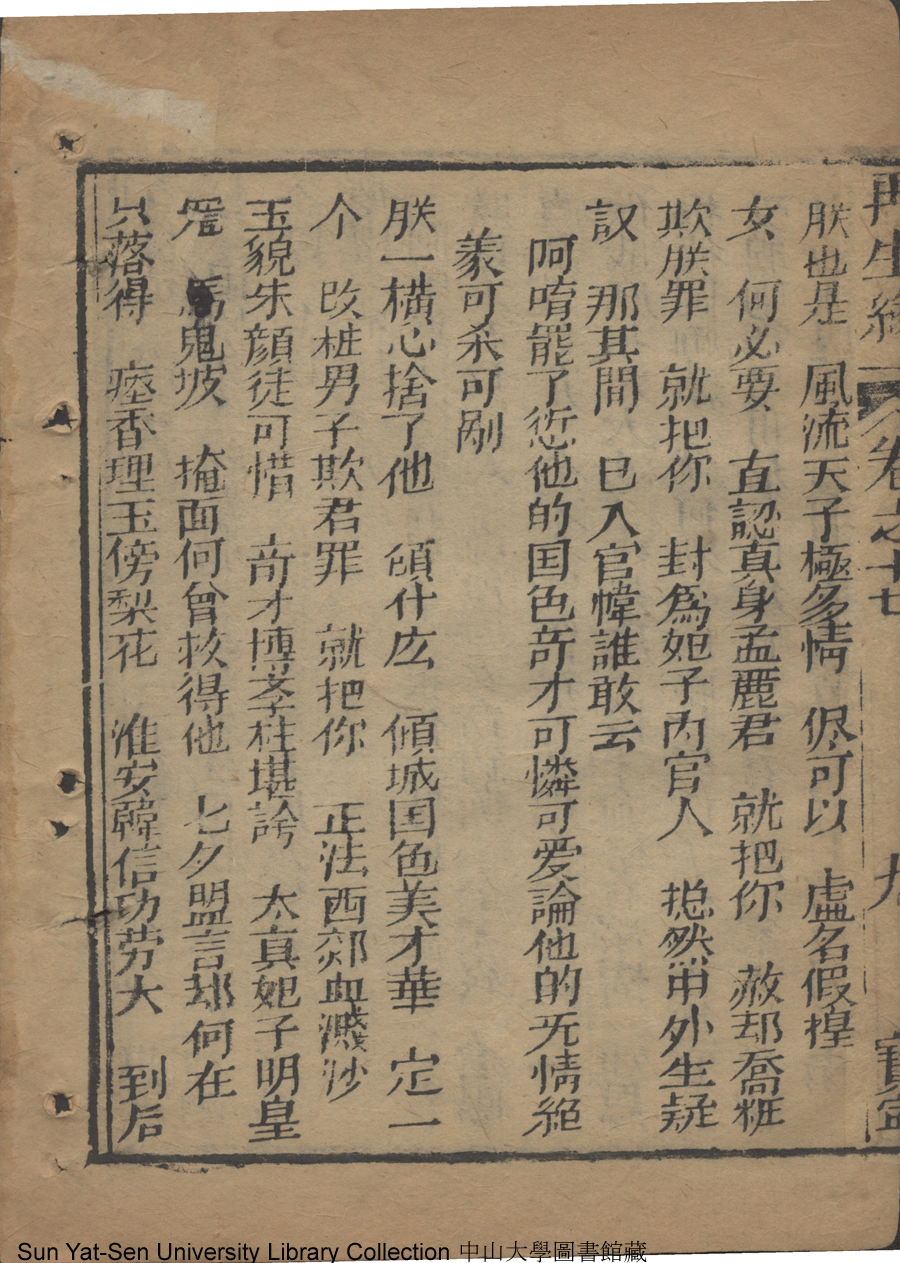 再生緣 卷之十七 九 寶寧
朕也是 風流天子極多情 侭可以 虛名假揑
女 何必要 直認真身孟麗君 就把你 赦却喬粧
欺朕罪 就把你 封爲妃子內官人 揔然用外生疑
議 那其間 已入宫幃誰敢云
阿唷罷了㤀他的国色奇才可憐可爱論他的无情絕
義可杀可剐
朕一橫心捨了他 顧什庅 傾城国色美才華 定一
个 改桩男子欺君罪 就把你 正法西郊血濺沙
玉貌朱顏徒可惜 奇才博孝枉堪誇 太真妃子明皇
寵 馬鬼坡 掩面何曾救得他 七夕盟言却何在
只落得 瘞香理玉傍梨花 淮安韓信功劳大 到后
Sun Yat-Sen University Library Collection 中山大學圖書館藏